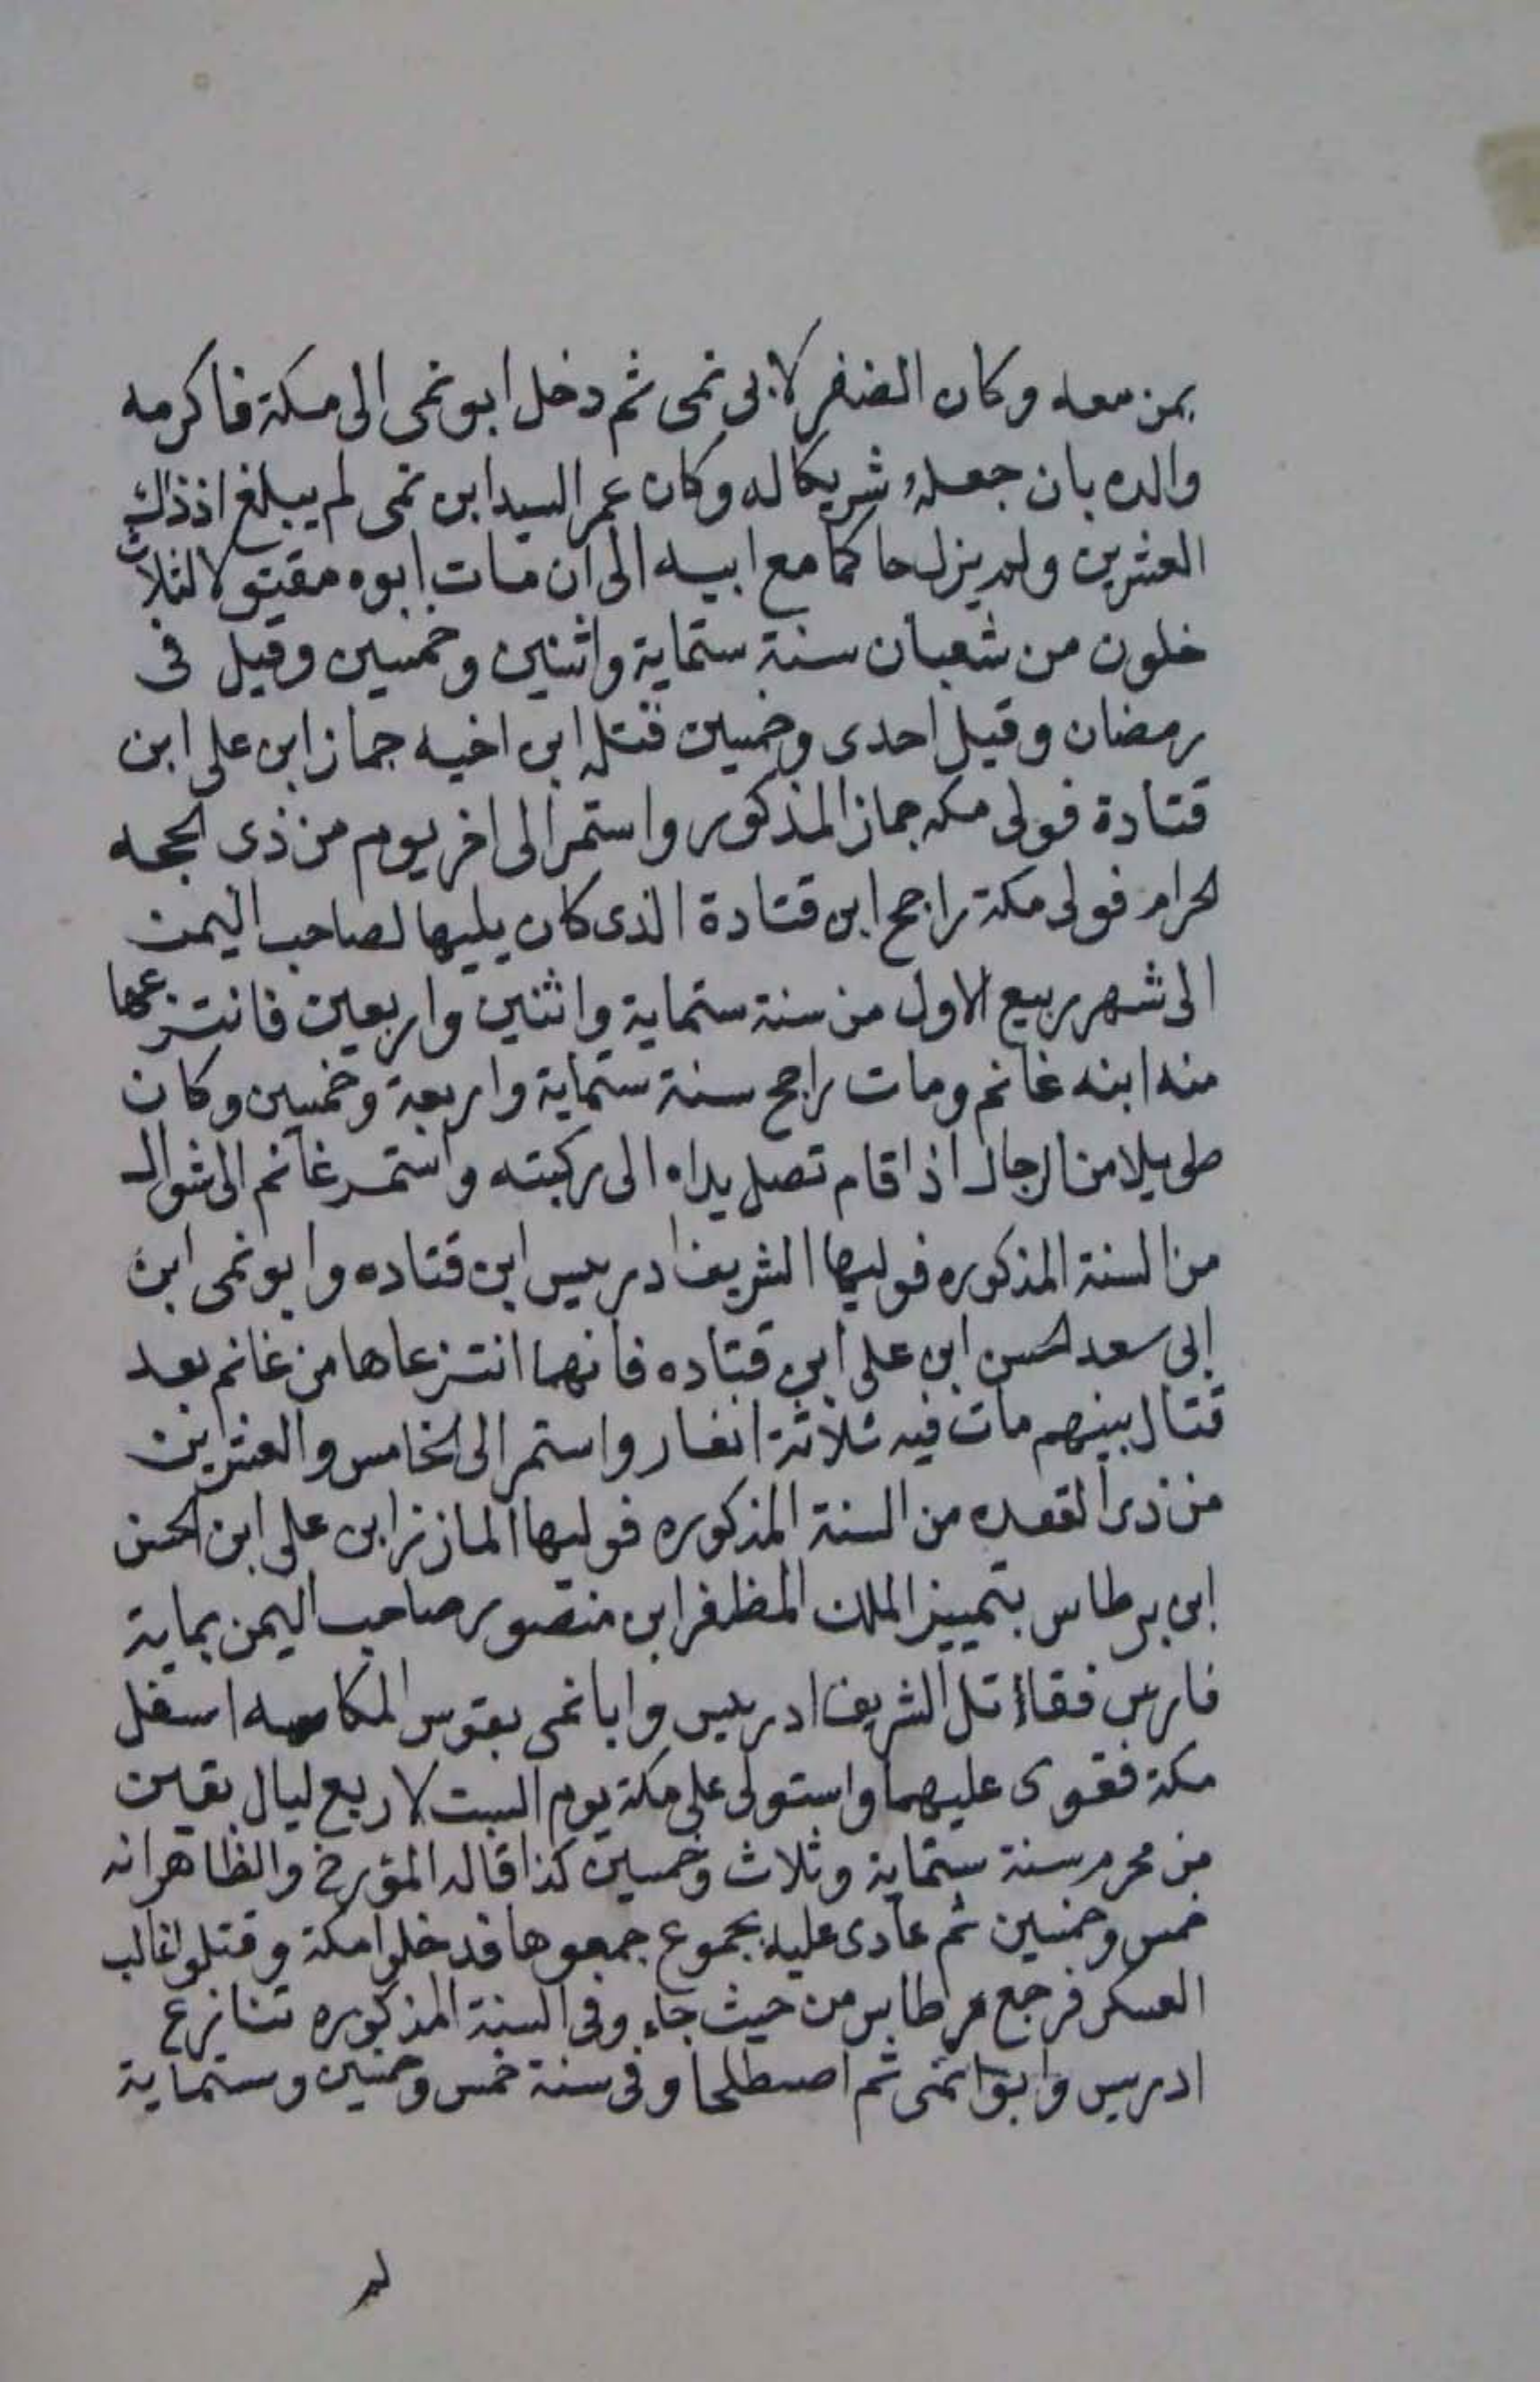 بمن معه وكان الضفر لابى نمى ثم دخل ابو نمى الى مكة فاكرمه
والده بان جعله شريكا له وكان عمر السيد ابن نمى لم يبلغ اذ ذاك
العشرين ولم يزل حاكما مع ابيه الى ان مات ابوه مقيتولا لثلاث
خلون من شعبان سنة ستماية واثنين وخمسين وقيل فى
رمضان وقيل احدى وخمسين قتله ابن اخيه جماز ابن على ابن
قتادة فولى مكه جماز المذكور واستمر الى اخر يوم من ذى الحجه
الحرام فولى مكة راجح ابن قتادة الذى كان يليها لصاحب اليمن
الى شهر ربيع الاول من سنة ستماية واثنين واربعين فانتزعها
منه ابنه غانم ومات راجح سنة ستماية واربعة وخمسين وكان
طويلا من الرجال اذا قام تصل يداه الى ركبته واستمر غانم الى شوال
من السنة المذكوره فوليها الشريف ادريس ابن قتاده وابو نمى ابن
ابى سعد الحسن ابن على ابن قتاده فانهما انتزعاها من غانم بعد
قتال بينهم مات فيه ثلاثة انفار واستمر الى الخامس والعشرين
من ذى القعده من السنة المذكوره فوليها المازز ابن على ابن الحسن
ابن برطاس بتمييز الملك المظفر ابن منصور صاحب اليمن بماية
فارس فقاتل الشريف ادريس وابا نمى بقوس المكاسه اسفل
مكة فقوى عليهما واستولى على مكة يوم السبت لاربع ليال بقين
من محرم سنة ستماية وثلاث وخمسين كذا قاله المؤرخ والظاهر انه
خمس وخمسين ثم عادى عليه بجموع جمعوها فدخلوا مكة وقتلوا غالب
العسكر فرجع مرطاس من حيث جاء وفى السنة المذكوره تنازع
ادريس وابو انمى ثم اصطلحا وفى سنة خمس وخمسين وستماية